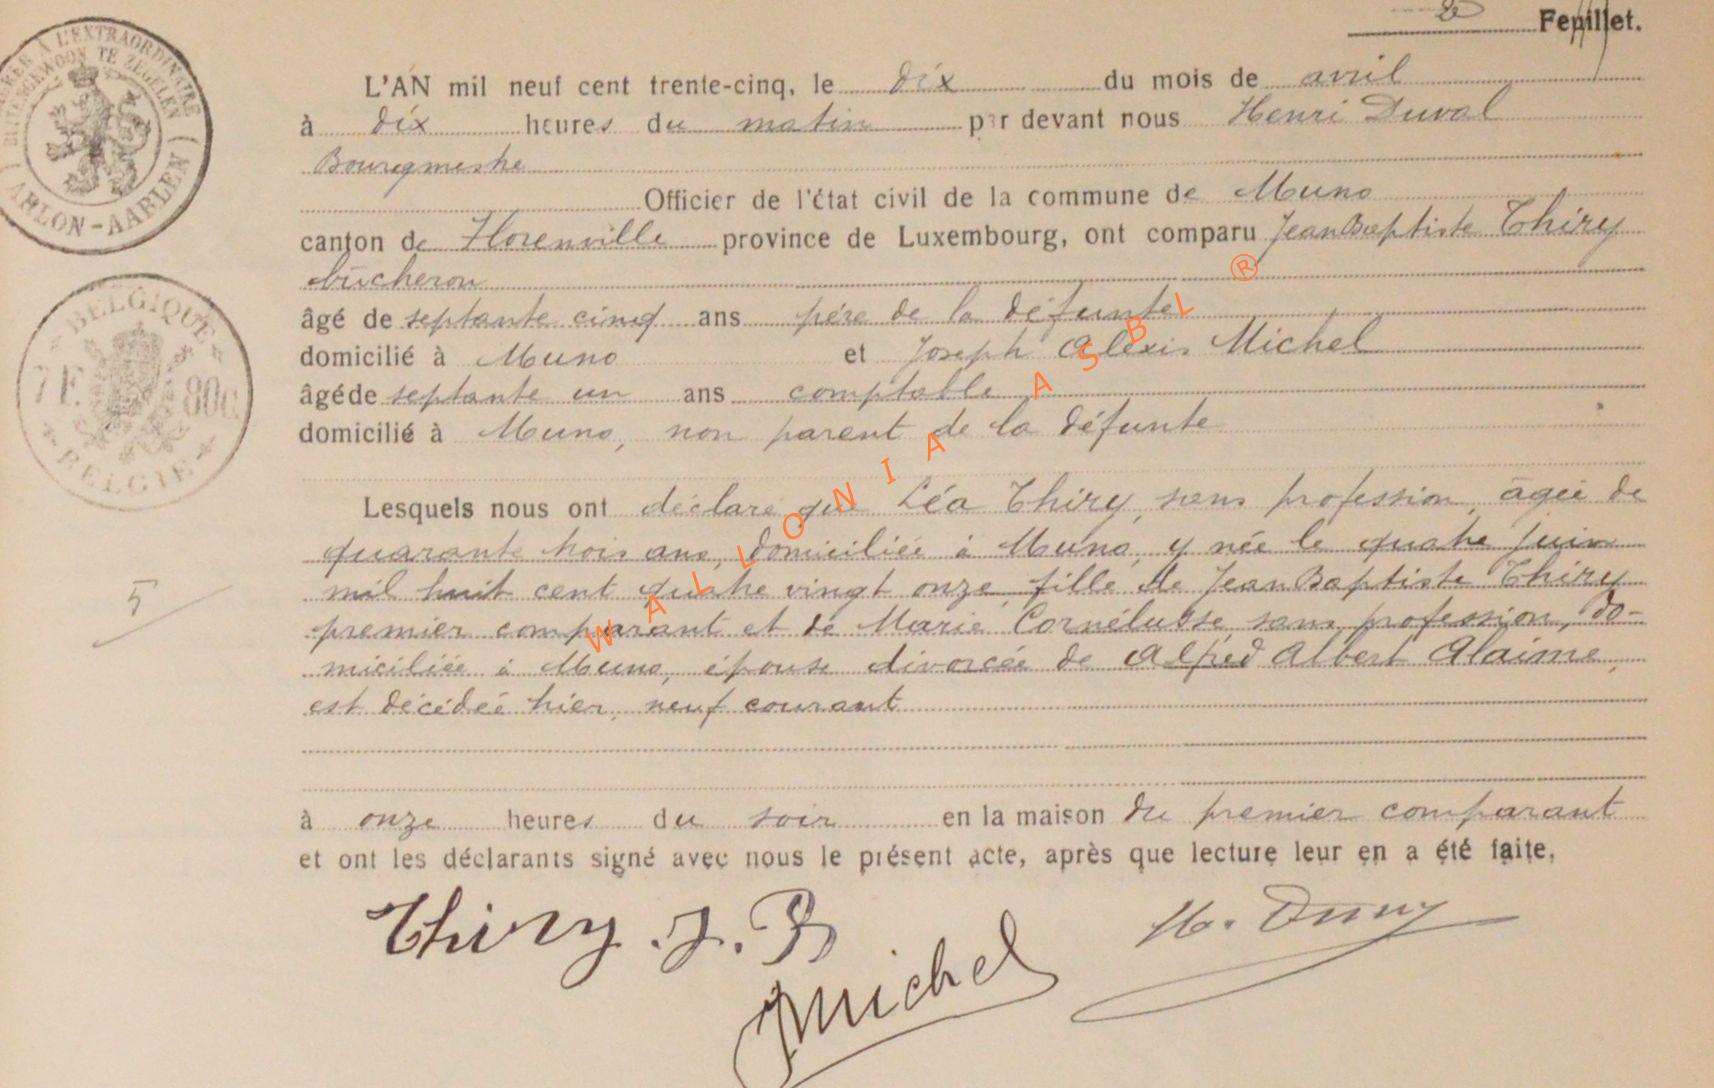 2e Feuillet.
L'AN mil neuf cent trente-cinq, le dix du mois de avril
à dix heures du matin par devant nous Henri Duval
Bourgmestre
Officier de l'état civil de la commune de Muno
canton de Florenville province de Luxembourg, ont comparu Jean Baptiste Thiry
bûcheron
âgé de septante cinq ans père de la défunte
domicilié à Muno et Joseph Alexis Michel
âgé de septante un ans comptable
domicilié à Muno, non parent de la défunte
Lesquels nous ont déclaré que Léa Thiry, sans profession, âgée de
quarante trois ans, domiciliée à Muno, y née le quatre juin
mil huit cent quatre vingt onze, fille de Jean Baptiste Thiry
premier comparant et de Marie Cornélusse, sans profession, do-
miciliée à Muno, épouse divorcée de Alfred Albert Alaime,
est décédée hier, neuf courant
à onze heures du soir en la maison du premier comparant
et ont les déclarants signé avec nous le présent acte, après que lecture leur en a été faite.
Thiry. J. B
Michel
5
ARLON-AARLEN
BELGIQUE
7 F. 80c.
BELGIE
WALLONIA ASBL ®